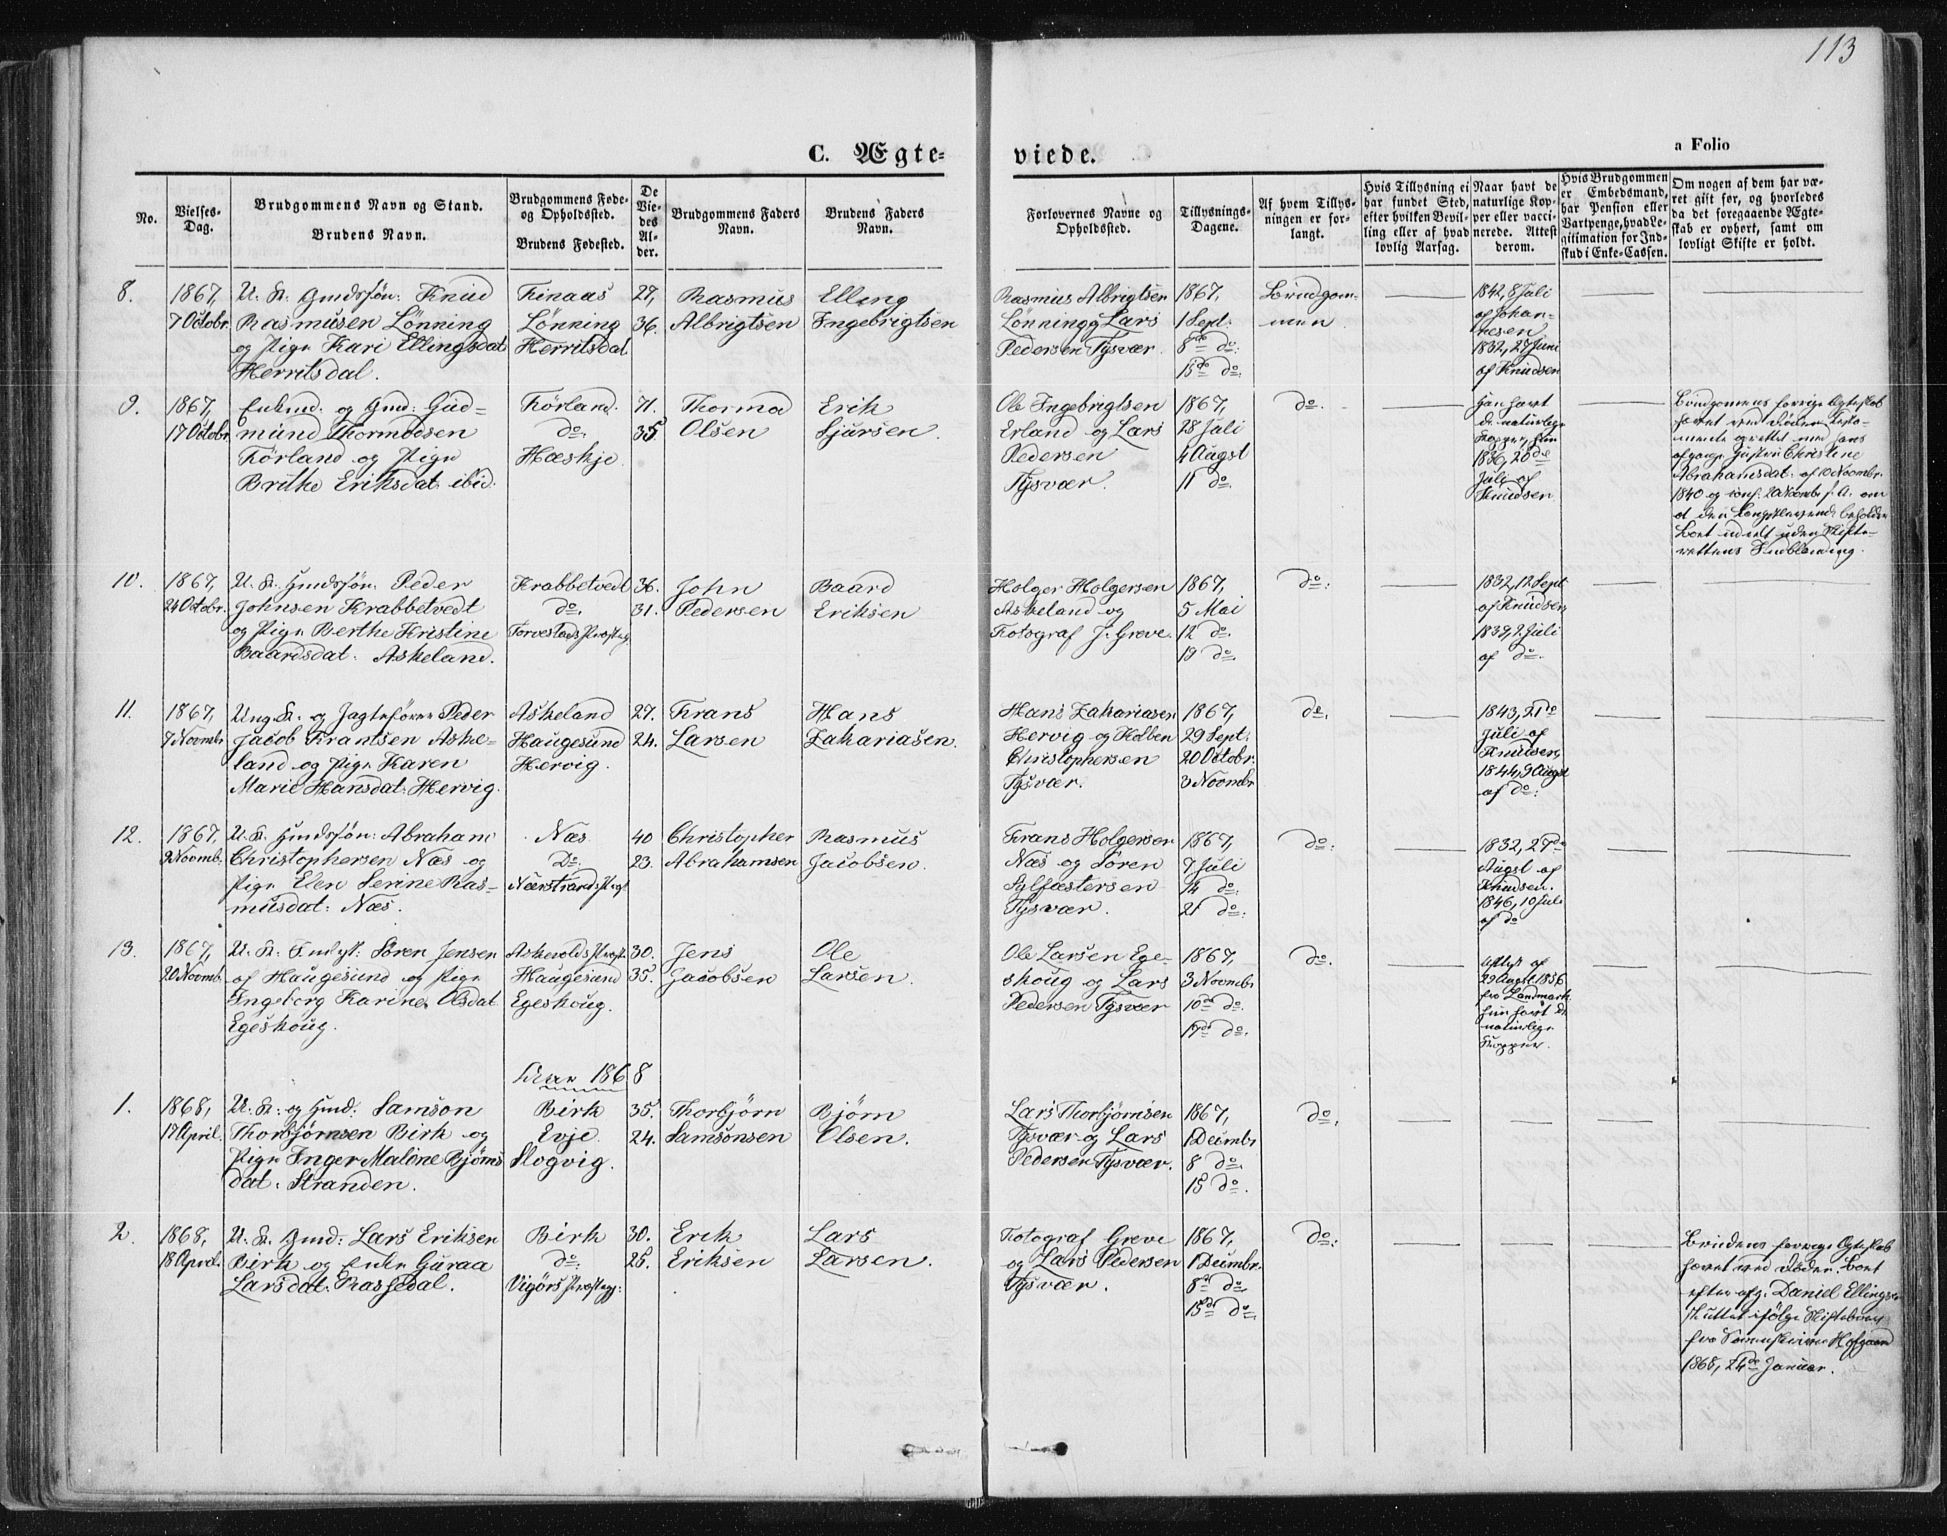 113
C. Ægte-
viede.
a Folio
No.
Vielses-
Dag.
Brudgommens Navn og Stand.
Brudens Navn.
Brudgommens Føde-
og Opholdssted.
Brudens Fødested.
De
Vie-
des
Al-
der.
Brudgommens Faders
Navn.
Brudens Faders
Navn.
Forlovernes Navne og
Opholdssted.
Tillysnings-
Dagene.
Af hvem Tillys-
ningen er for-
langt.
Hvis Tillysning ei
har fundet Sted,
efter hvilken Bevil-
ling eller af hvad
lovlig Aarsag.
Naar havt de
naturlige Kop-
per eller vacci-
nerede. Attest
derom.
Hvis Brudgommen
er Embedsmand,
har Pension eller
Vartpenge, hvad Le-
gitimation for Ind-
skud i Enke-Cassen.
Om nogen af dem har væ-
ret gift før, og hvorledes
da det foregaaende Ægte-
skab er ophørt, samt om
lovligt Skifte er holdt.
8.
1867,
7 Octobr.
U. K. Gmdsføn: Knud
Rasmusen Lönning
og Pige Kari Ellingsdat
Herritsdal.
Finaas
Lönning
Herritsdal
27,
36.
Rasmus
Albrigtsen
Elling
Ingebrigtsen
Rasmus Albrigtsen
Lönning og Lars
Pedersen Tysvær.
1867,
1 Sept:
8de do:
15de do:
Brudgom-
men
1842, 8 Juli
af Johan-
nesen
1832, 27 Juni
af Knudsen
9.
1867,
17 Octobr.
Enkmd. og Gmd: Gud-
mund Thormodsen
Førland og Pige
Brithe Eriksdat: ibid:
Førland.
do.
Hæskje
71.
35.
Thormod
Olsen
Erik
Sjursen.
Ole Ingebrigtsen
Erland og Lars
Pedersen
Tysvær.
1867,
28 Juli
4 Augst
11 do.
do.
Han havt
de naturlige
Kopper, hun
1836, 20de
Juli af
Knudsen
Brudgommens forrige Ægteskab
hævet ved Døden. Testa-
mente oprettet med hans
afgangne Hustru Christine
Abrahamsdat: af 10 Novembr.
1840 og conf. 20 Novembr. s. A. om
at den Længstlevende beholder
Boet udelt uden Skifte-
rettens Indblanding.
10.
1867,
24 Octobr.
U. K. Gmdsføn: Peder
Johnsen Krabbetvedt
og Pige Berthe Kristine
Baardsdat: Askeland.
Krabbetvedt
do.
Torvestads Præstg.
36.
31.
John
Pedersen
Baard
Eriksen
Holger Holgersen
Askeland og
Fotograf J. Greve.
1867,
5 Mai
12 do.
19 do.
do:
1832, 12 Sept
af Knudsen
1839, 2 Juli
af do.
11.
1867,
7 Novmbr
Ung. K. og Jagtefører Peder
Jacob Frantsen Aske-
land og Pige Karen
Marie Hansdat: Hervig.
Askeland
Haugesund
Hervig.
27.
24.
Frans
Larsen
Hans
Zakariasen.
Hans Zakariasen
Hervig og Holben
Christophersen
Tysvær.
1867,
29 Sept.
20 Octobr.
3 Novmbr
do.
1843, 21de
Juli af
Knudsen,
1844, 9 Augst
af do:
12.
1867
9 Novmb.
U. K. Gmdsføn: Abraham
Christophersen Næs og
Pige Elen Serine Ras-
musdat: Næs.
Næs
Do
Nærstrands Prgt
40
23.
Christopher
Abrahamsen
Rasmus
Jacobsen.
Frans Holgersen
Næs og Sören
Sylfæstersen
Tysvær.
1867,
7 Juli
14 do:
21 do:
do:
1832, 27de
Augst af
Knudsen.
1846, 10 Juli
af do
13.
1867,
20 Novmb.
U. K. Sören Jensen
af Haugesund og Pige
Ingeborg Karine Olsdat
Egeskoug.
Askevolds Præst.
Haugesund
Egeskoug.
30.
35.
Jens
Jacobsen
Ole
Larsen.
Ole Larsen Ege-
skoug og Lars
Pedersen Tysvær
1867,
3 Novmbr
10de do.
17de do:
do.
Attest af
29 Augst 1856
fra Landmark
hun havt de
naturlige
Kopper.
1868
1.
1868,
17 April.
U. K. og Gmd: Samson
Thorbjørnsen Birk og
Pige Inger Malene Bjørns
dat: Stranden.
Birk
Evje.
Slogvig.
35.
24.
Thorbjörn
Samsonsen
Bjørn
Olsen.
Lars Thorbjørnsen
Tysvær og Lars
Pedersen Tysvær.
1867,
1 Decmbr
8 do.
15 do.
do.
2.
1868,
18 April.
U. K. Gmd: Lars Eriksen
Birk og Enke Guraa
Larsdat: Rassedal.
Birk
do:
Vigørs Præstegj:
30.
25.
Erik
Eriksen
Lars
Larsen.
Fotograf Greve
og Lars Pedersen
Tysvær.
1867,
1 Decmbr.
8de do.
15de do.
do:
Brudens forrige Ægteskab
hævet ved Døden. Boet
efter afg. Daniel Ellingsen
skiftet ifølge Skiftebrev
fra Sorenskriver Hofgaard
1868, 24de Januar.